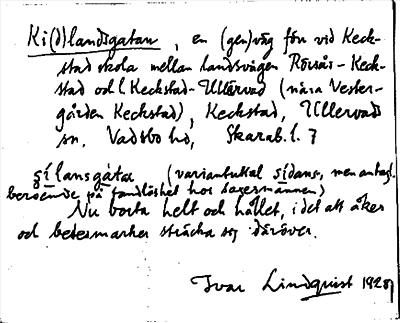 Ki(d)landsgatan, en (gen)väg förr vid Keck-
stad skola mellan landsvägen Rövsås - Keck-
stad och l. Keckstad - Ullervad (nära Väster-
gården Keckstad), Keckstad, Ullervads
sn. Vadsbo hd, Skarab. l.
şílansgáta (variantuttal sídans, men antagl.
beroende på tandlöshet hos sagesmannen)
Nu borta helt och hållet, i det att åker
och betesmarker sträcka sig däröver.
Ivar Lindquist 1928